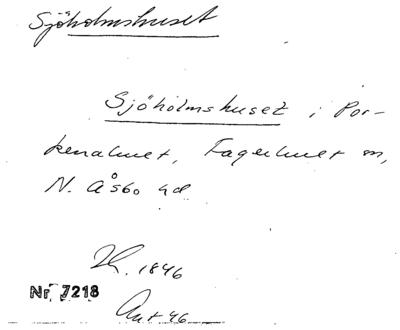 Sjöholmshuset
Sjöholmshuset i Por-
kenahult, Fagerhult sn,
N. Åsbo hd
1846
Nr 7218
Ant 46